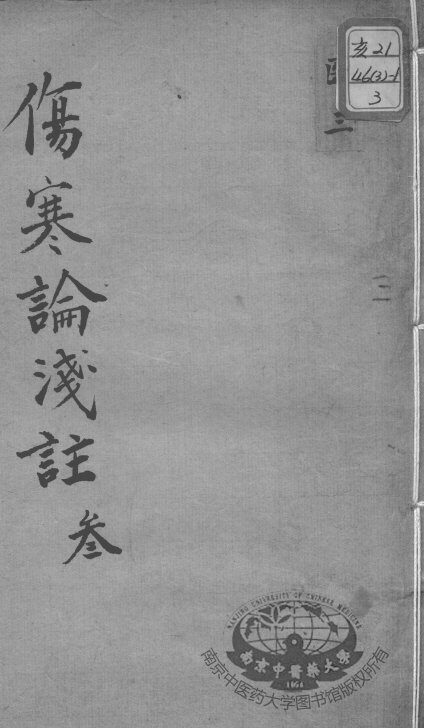 傷寒論淺註 叁
亥21
46(3)-1
3
三
NANJING UNIVERSITY OF CHINESE MEDICINE
南京中醫藥大學
1954
南京中医药大学图书馆版权所有